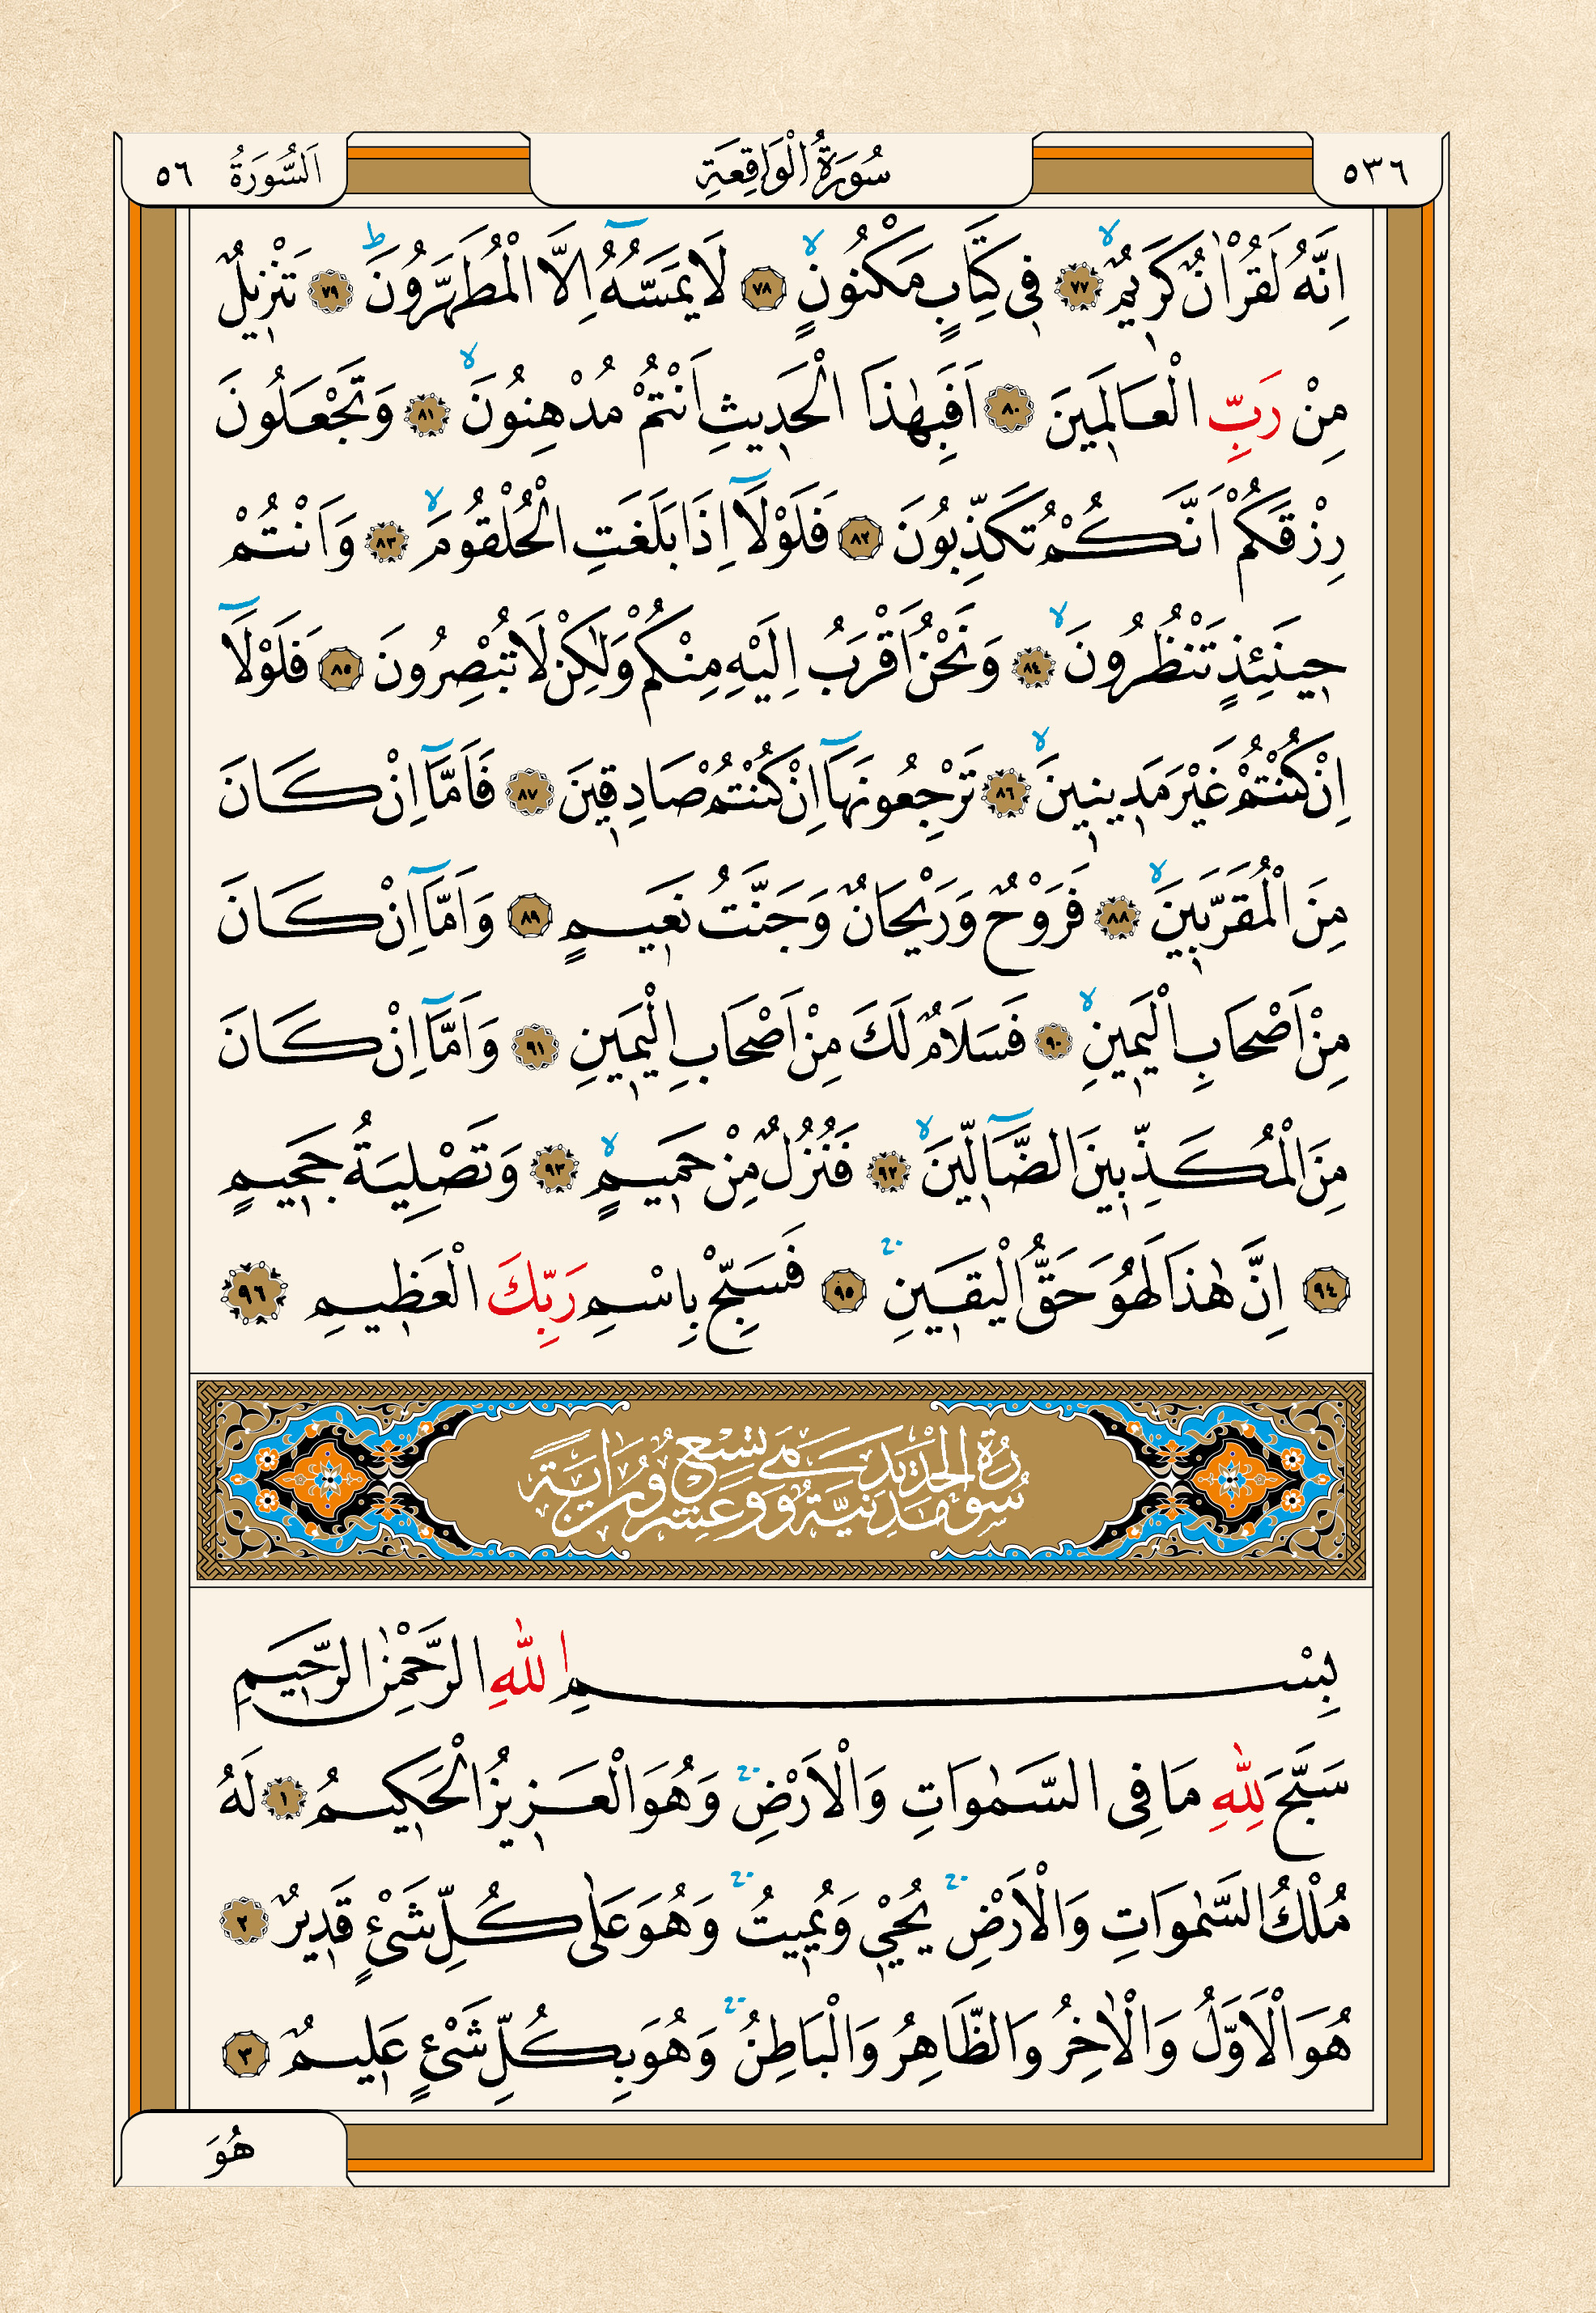 ٥٣٦ سُورَةُ الْوَاقِعَةِ اَلسُّورَةُ ٥٦
اِنَّهُ لَقُرْاٰنٌ كَر۪يمٌۙ ﴿٧٧﴾ ف۪ي كِتَابٍ مَكْنُونٍۙ ﴿٧٨﴾ لَا يَمَسُّهُٓ اِلَّا الْمُطَهَّرُونَۜ ﴿٧٩﴾ تَنْز۪يلٌ
مِنْ رَبِّ الْعَالَم۪ينَ ﴿٨٠﴾ اَفَبِهٰذَا الْحَد۪يثِ اَنْتُمْ مُدْهِنُونَۙ ﴿٨١﴾ وَتَجْعَلُونَ
رِزْقَكُمْ اَنَّكُمْ تُكَذِّبُونَ ﴿٨٢﴾ فَلَوْلَٓا اِذَا بَلَغَتِ الْحُلْقُومَۙ ﴿٨٣﴾ وَاَنْتُمْ
ح۪ينَئِذٍ تَنْظُرُونَۙ ﴿٨٤﴾ وَنَحْنُ اَقْرَبُ اِلَيْهِ مِنْكُمْ وَلٰكِنْ لَا تُبْصِرُونَ ﴿٨٥﴾ فَلَوْلَٓا
اِنْ كُنْتُمْ غَيْرَ مَد۪ين۪ينَۙ ﴿٨٦﴾ تَرْجِعُونَهَٓا اِنْ كُنْتُمْ صَادِق۪ينَ ﴿٨٧﴾ فَاَمَّٓا اِنْ كَانَ
مِنَ الْمُقَرَّب۪ينَۙ ﴿٨٨﴾ فَرَوْحٌ وَرَيْحَانٌ وَجَنَّتُ نَع۪يمٍ ﴿٨٩﴾ وَاَمَّٓا اِنْ كَانَ
مِنْ اَصْحَابِ الْيَم۪ينِۙ ﴿٩٠﴾ فَسَلَامٌ لَكَ مِنْ اَصْحَابِ الْيَم۪ينِ ﴿٩١﴾ وَاَمَّٓا اِنْ كَانَ
مِنَ الْمُكَذِّب۪ينَ الضَّٓالّ۪ينَۙ ﴿٩٢﴾ فَنُزُلٌ مِنْ حَم۪يمٍۙ ﴿٩٣﴾ وَتَصْلِيَةُ جَح۪يمٍ
﴿٩٤﴾ اِنَّ هٰذَا لَهُوَ حَقُّ الْيَق۪ينِۚ ﴿٩٥﴾ فَسَبِّحْ بِاسْمِ رَبِّكَ الْعَظ۪يمِ ﴿٩٦﴾
سُورَةُ الْحَدِيدِ مَدَنِيَّةٌ وَهِيَ تِسْعٌ وَعِشْرُونَ اٰيَةً
بِسْمِ اللّٰهِ الرَّحْمٰنِ الرَّح۪يمِ
سَبَّحَ لِلّٰهِ مَا فِي السَّمٰوَاتِ وَالْاَرْضِۚ وَهُوَ الْعَز۪يزُ الْحَك۪يمُ ﴿١﴾ لَهُ
مُلْكُ السَّمٰوَاتِ وَالْاَرْضِۚ يُحْي۪ي وَيُم۪يتُۚ وَهُوَ عَلٰى كُلِّ شَيْءٍ قَد۪يرٌ ﴿٢﴾
هُوَ الْاَوَّلُ وَالْاٰخِرُ وَالظَّاهِرُ وَالْبَاطِنُۚ وَهُوَ بِكُلِّ شَيْءٍ عَل۪يمٌ ﴿٣﴾
هُوَ